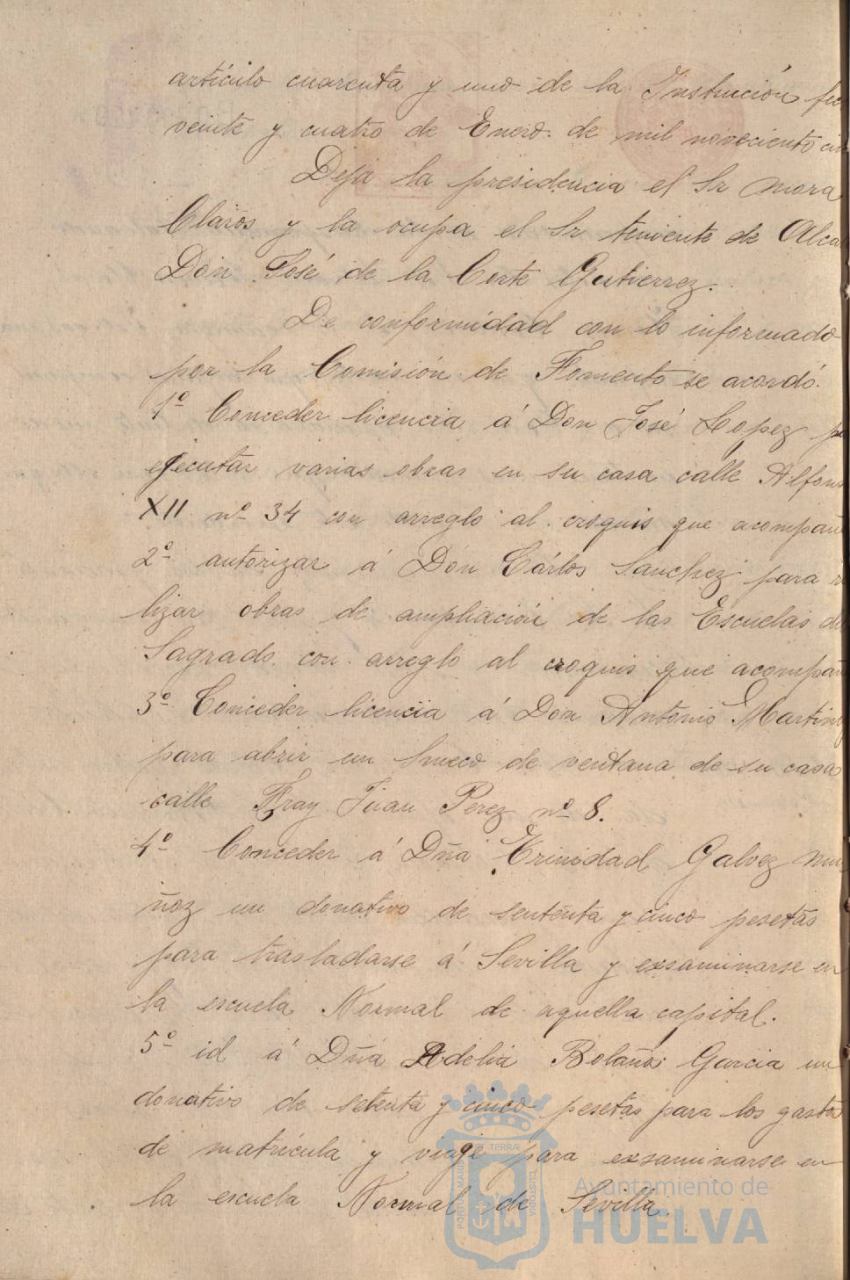 artículo cuarenta y uno de la Instrucción fec
veinte y cuatro de Enero de mil novecientos cin
Deja la presidencia el Sr Mora
Claros y la ocupa el Sr teniente de Alca
Don José de la Corte Gutierrez.
De conformidad con lo informado
por la Comisión de Fomento se acordó.
1º Conceder licencia á Don José Lopez p
ejecutar varias obras en su casa calle Alfons
XII nº 34 con arreglo al croquis que acompañ
2º autorizar á Don Cárlos Sanchez para r
lizar obras de ampliación de las Escuelas de
Sagrado con arreglo al croquis que acompañ
3º Conceder licencia á Don Antonio Martin
para abrir un hueco de ventana de su casa
calle Fray Juan Perez nº 8.
4º Conceder á Dña Trinidad Galvez Mu
ñoz un donativo de sententa y cinco pesetas
para trasladarse á Sevilla y exsaminarse en
la escuela Normal de aquella capital.
5º id á Dña Adelia Bolaños Garcia un
donativo de setenta y cinco pesetas para los gastos
de matrícula y viage para exsaminarse en
la escuela Normal de Sevilla
Ayuntamiento de
HUELVA